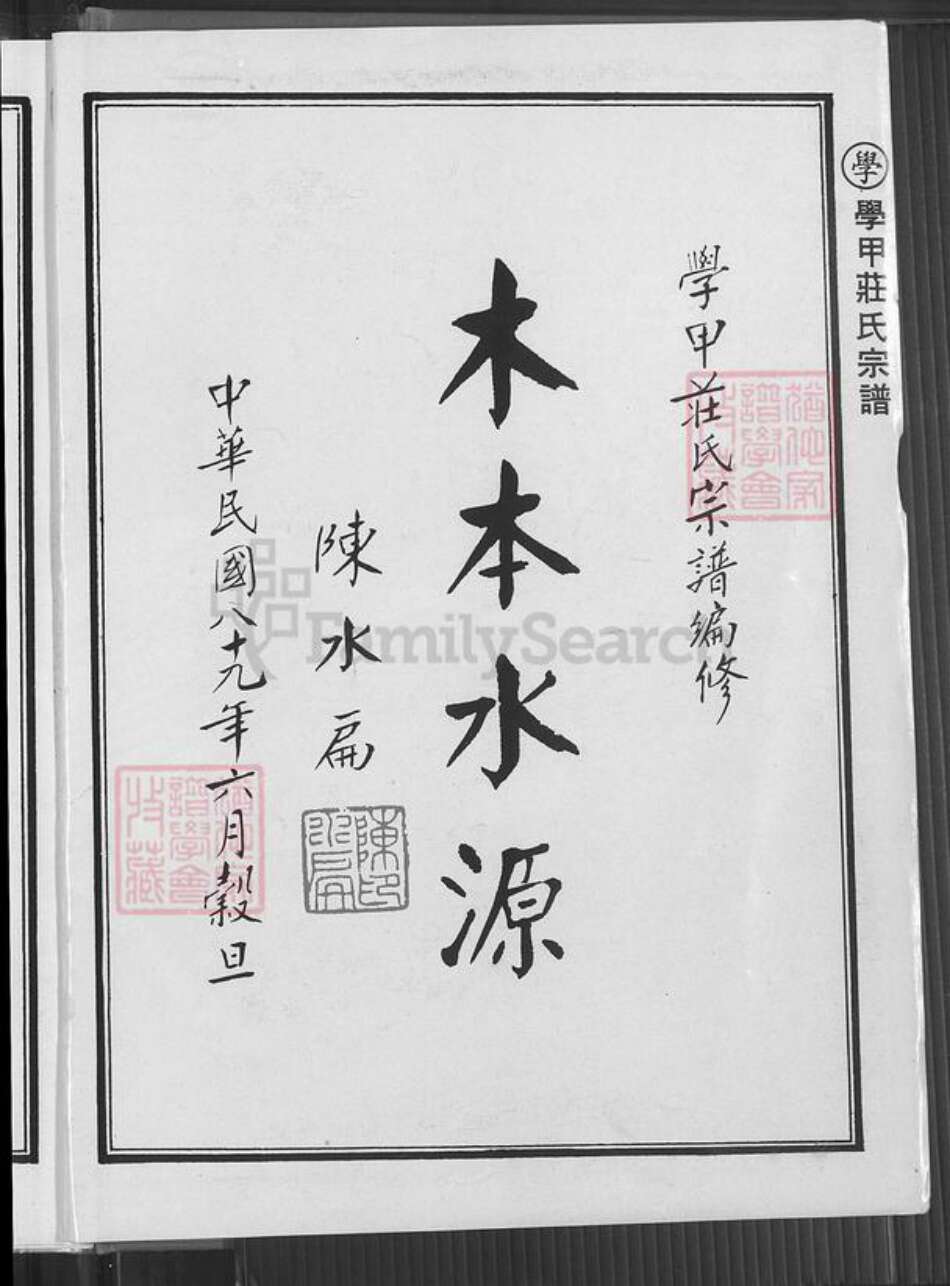 ㊫學甲莊氏宗譜
學甲莊氏宗譜編修
木本水源
陳水扁
陳水扁印
中華民國八十九年六月穀旦
譜學會
收藏
FamilySearch